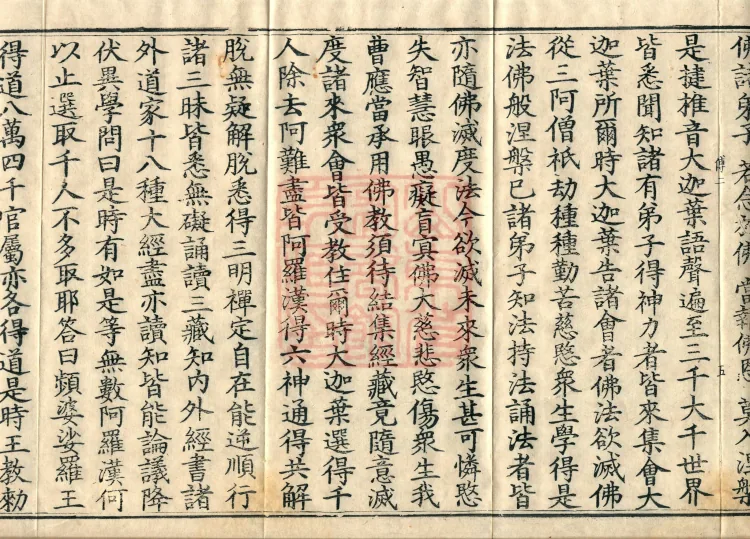 佛諸弟子 若念於佛 當報佛恩 莫入涅槃
是揵椎音大迦葉語聲遍至三千大千世界
皆悉聞知諸有弟子得神力者皆來集會大
迦葉所爾時大迦葉告諸會者佛法欲滅佛
從三阿僧祇劫種種勤苦慈愍衆生學得是
法佛般涅槃已諸弟子知法持法誦法者皆
亦隨佛滅度法今欲滅未來衆生甚可憐愍
失智慧眼愚癡盲冥佛大慈悲愍傷衆生我
曹應當承用佛教須待結集經藏竟隨意滅
度諸來衆會皆受教住爾時大迦葉選得千
人除去阿難盡皆阿羅漢得六神通得共解
脫無疑解脫悉得三明禪定自在能逆順行
諸三昧皆悉無礙誦讀三藏知內外經書諸
外道家十八種大經盡亦讀知皆能論議降
伏異學問曰是時有如是等無數阿羅漢何
以止選取千人不多取耶答曰頻婆娑羅王
得道八萬四千官屬亦各得道是時王教勅